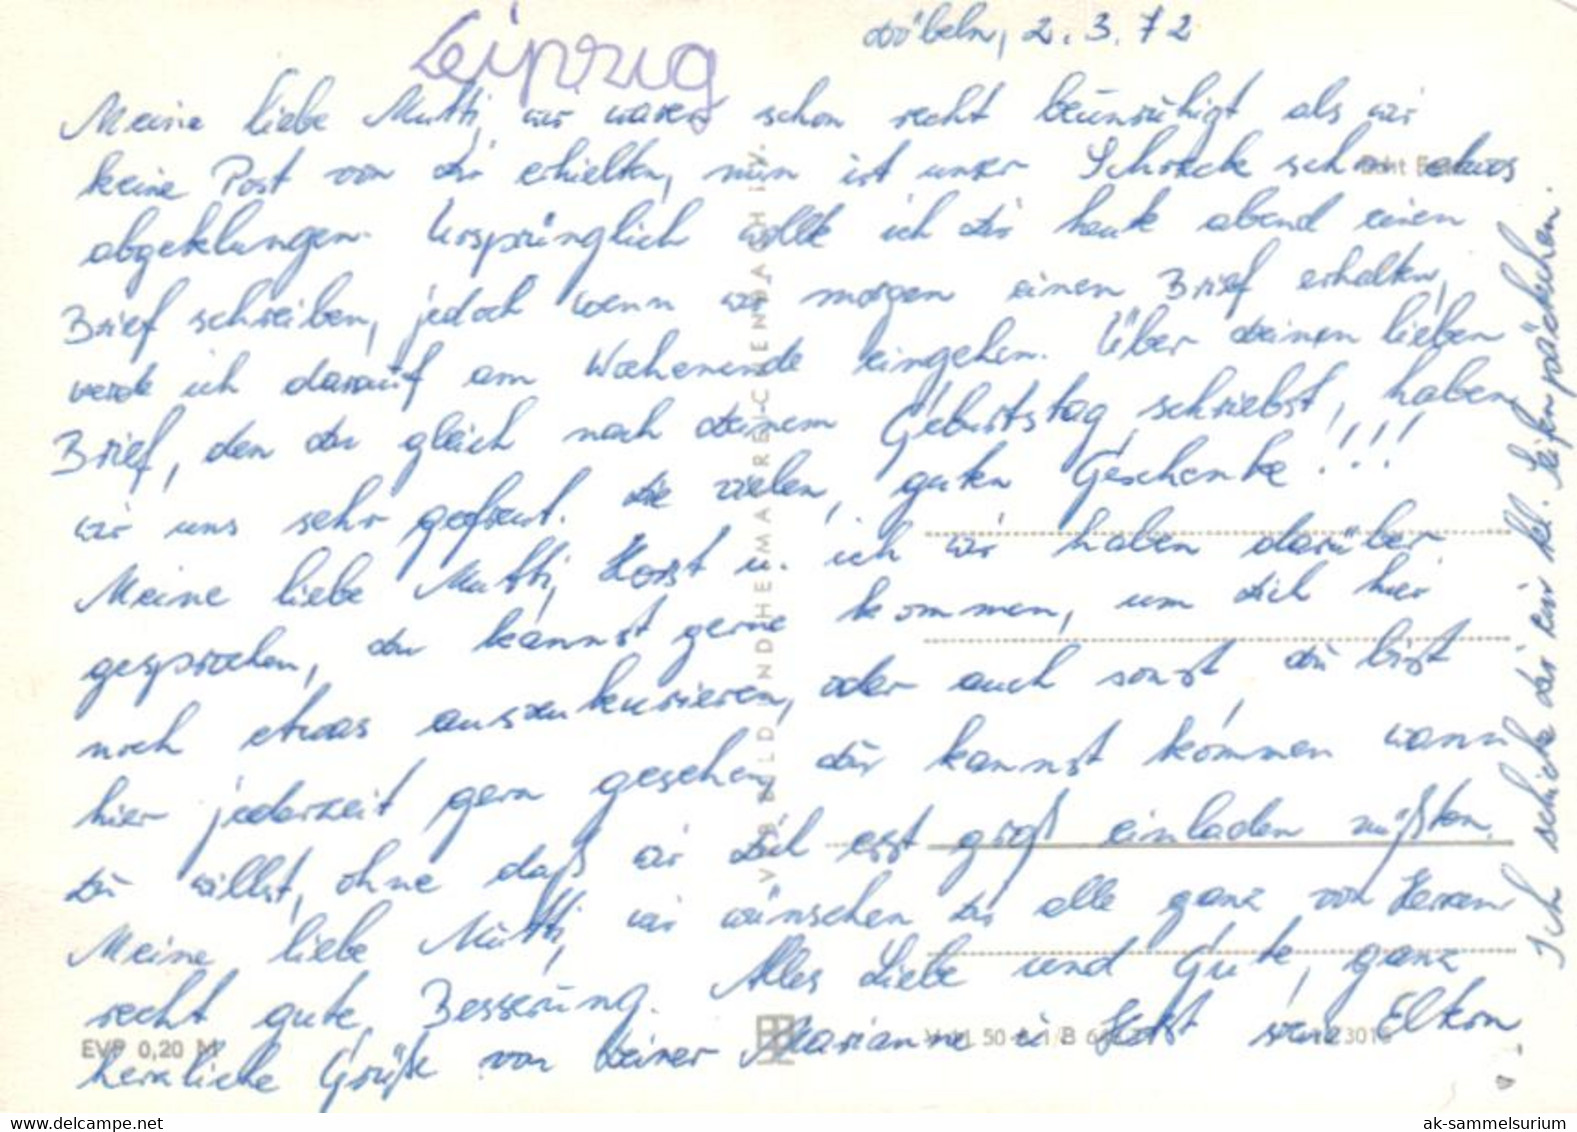 Leipzig
Döbeln, 2.3.72
Meine liebe Mutti, wir waren schon recht beunruhigt als wir
keine Post von Dir erhielten, nun ist unser Schreck schon etwas
abgeklungen. Ursprünglich wollte ich Dir heute abend einen
Brief schreiben, jedoch wenn wir morgen einen Brief erhalten,
werde ich darauf am Wochenende eingehen. Über Deinen lieben
Brief, den Du gleich nach Deinem Geburtstag schriebst, haben
wir uns sehr gefreut. Die vielen, guten Geschenke!!!
Meine liebe Mutti, Horst u. ich wir haben darüber
gesprochen, Du kannst gerne kommen, um Dich hier
noch etwas auszukurieren, oder auch sonst, Du bist
hier jederzeit gern gesehen, Du kannst kommen wann
Du willst, ohne daß wir Dich erst groß einladen müßten.
Meine liebe Mutti, wir wünschen Dir alle ganz von Herzen
recht gute Besserung. Alles Liebe und Gute, ganz
herzliche Grüße von Deiner Marianne u. Horst sowie Elkon
Ich schicke Dir ein kl. Seifenpäckchen.
VEB BILD UND HEIMAT REICHENBACH I. V.
Echt
EVP 0,20 M
ak-sammelsurium